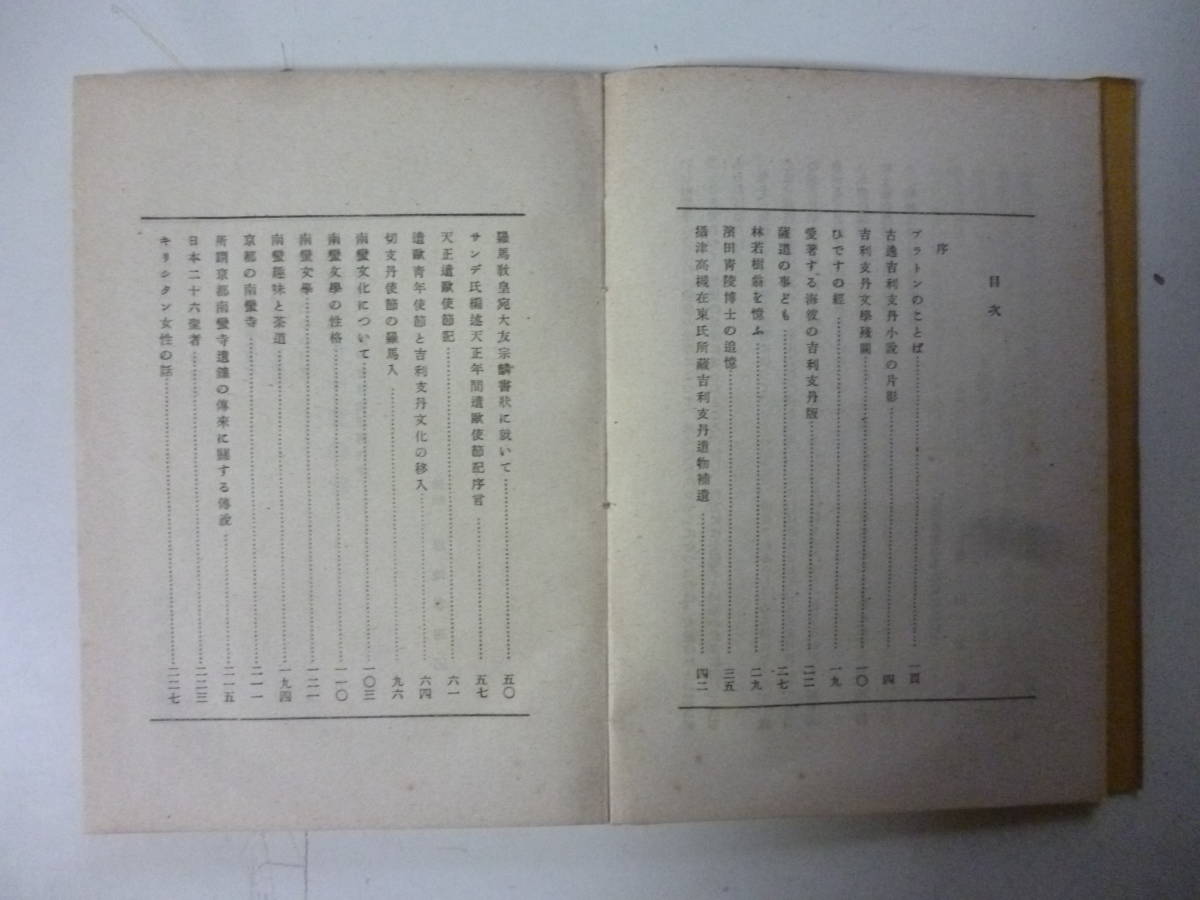 目次
序
プラトンのことば 一頁
古逸吉利支丹小説の片影 四
吉利支丹文學殘闕 一〇
ひですの經 一九
愛著する海彼の吉利支丹版 二二
薩道の事ども 二七
林若樹翁を憶ふ 二九
濱田青陵博士の追憶 三五
攝津高槻在東氏所藏吉利支丹遺物補遺 四二
羅馬敎皇宛大友宗麟書狀に就いて 五〇
サンデ氏編述天正年間遣歐使節記序言 五七
天正遣歐使節記 六一
遣歐青年使節と吉利支丹文化の移入 六四
切支丹使節の羅馬入 九六
南蠻文化について 一〇三
南蠻文學の性格 一一〇
南蠻文學 一二一
南蠻趣味と茶道 一九四
京都の南蠻寺 二一一
所謂京都南蠻寺遺鐘の傳來に關する傳說 二一五
日本二十六聖者 二二三
キリシタン女性の話 二二七